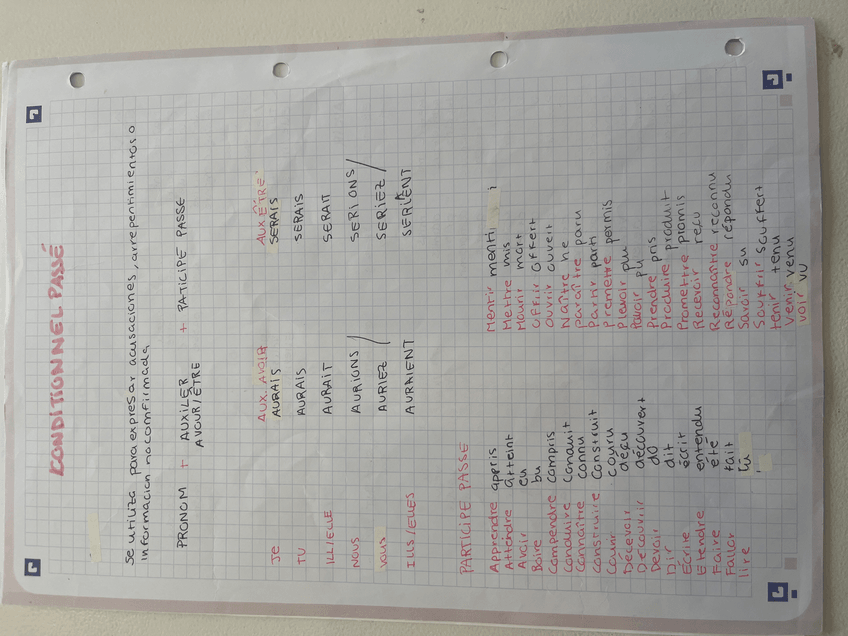 CONDITIONNEL PASSÉ
Se utiliza para expresar acusaciones, arrepentimientos o
informacion no comfirmada
PRONOM + AUXILER + PATICIPE PASSÉ
AVOUR/ÊTRE
AUX. AVOIR AUX ÊTRE
JE AURAIS SERAIS
TU AURAIS SERAIS
ILL/ELLE AURAIT SERAIT
NOUS AURIONS SERIONS
VOUS AURIEZ SERIEZ
ILLS/ELLES AURAIENT SERIENT
PARTICIPE PASSE
Apprendre appris Mentir menti
Attendre atteint Mettre mis
Avoir eu Mourir mort
Boire bu Offrir offert
Compendre compris Ouvrir ouvert
Conduire conduit Naître né
Connaître connu paraître paru
construire construit Partir parti
Courir couru Premettre permis
Décevoir déçu Plevoir plu
Découvrir découvert Pouvoir pu
Devoir dû Prendre pris
Dir dit Produire produit
Écrite écrit Promettre promis
Etendre entendu Recevoir recu
Faire été Reconnaître reconnu
Falloir fait Répondre répondu
lire lu Savoir su
Souffrir souffert
tenir tenu
Venir venu
voir vu